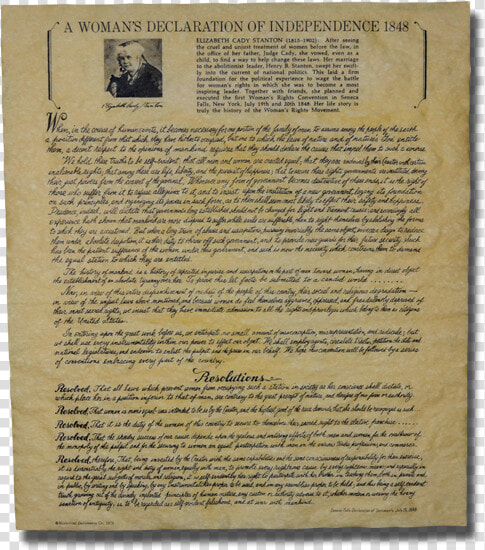 A WOMAN'S DECLARATION OF INDEPENDENCE 1848
ELIZABETH CADY STANTON (1815-1902). After seeing
the cruel and unjust treatment of women before the law, in
the office of her father, Judge Cady, she vowed, even as a
child, to find a way to help change these laws. Her marriage
to the abolitionist leader, Henry B. Stanton, swept her swift-
ly into the current of national politics. This laid a firm
foundation for the political experience to wage the battle
for women's rights in which she was to become a most
inspiring leader. Together with friends, she planned and
executed the first Woman's Rights Convention in Seneca
Falls, New York, July 19th and 20th 1848. Her life story is
truly the history of the Woman's Rights Movement.
Elizabeth Cady Stanton
When, in the course of human events, it becomes necessary for one portion of the family of man to assume among the people of the earth
a position different from that which they have hitherto occupied, but one to which the laws of nature and of nature's God entitle
them, a decent respect to the opinions of mankind requires that they should declare the causes that impel them to such a course.
We hold these truths to be self-evident; that all men and women are created equal; that they are endowed by their Creator with certain
inalienable rights; that among these are life, liberty, and the pursuit of happiness; that to secure these rights governments are instituted, deriving
their just powers from the consent of the governed. Whenever any form of government becomes destructive of these ends, it is the right of
those who suffer from it to refuse allegiance to it, and to insist upon the institution of a new government, laying its foundation
on such principles, and organizing its powers in such form, as to them shall seem most likely to effect their safety and happiness.
Prudence, indeed, will dictate that governments long established should not be changed for light and transient causes; and accordingly all
experience hath shown that mankind are more disposed to suffer, while evils are sufferable, than to right themselves by abolishing the forms
to which they are accustomed. But when a long train of abuses and usurpations, pursuing invariably the same object, evinces a design to reduce
them under absolute despotism, it is their duty to throw off such government, and to provide new guards for their future security. Such
has been the patient sufferance of the women under this government, and such is now the necessity which constrains them to demand
the equal station to which they are entitled.
The history of mankind is a history of repeated injuries and usurpations on the part of man toward woman, having in direct object
the establishment of an absolute tyranny over her. To prove this, let facts be submitted to a candid world
Now, in view of this entire disfranchisement of one-half the people of this country, their social and religious degradation—
in view of the unjust laws above mentioned, and because women do feel themselves aggrieved, oppressed, and fraudulently deprived of
their most sacred rights, we insist that they have immediate admission to all the rights and privileges which belong to them as citizens
of the United States.
In entering upon the great work before us, we anticipate no small amount of misconception, misrepresentation, and ridicule; but
we shall use every instrumentality within our power to effect our object. We shall employ agents, circulate tracts, petition the state and
national legislatures, and endeavor to enlist the pulpit and the press in our behalf. We hope this convention will be followed by a series
of conventions embracing every part of the country.
Resolutions
Resolved, That all laws which prevent woman from occupying such a station in society as her conscience shall dictate, or
which place her in a position inferior to that of man, are contrary to the great precept of nature, and therefore of no force or authority.
Resolved, That woman is man's equal, was intended to be so by the Creator, and the highest good of the race demands that she should be recognized as such
Resolved, That it is the duty of the women of this country to secure to themselves their sacred right to the elective franchise
Resolved, That the speedy success of our cause depends upon the zealous and untiring efforts of both men and women for the overthrow of
the monopoly of the pulpit, and for the securing to woman an equal participation with men in the various trades, professions, and commerce.
Resolved, therefore, That, being invested by the Creator with the same capabilities and the same consciousness of responsibility for their exercise,